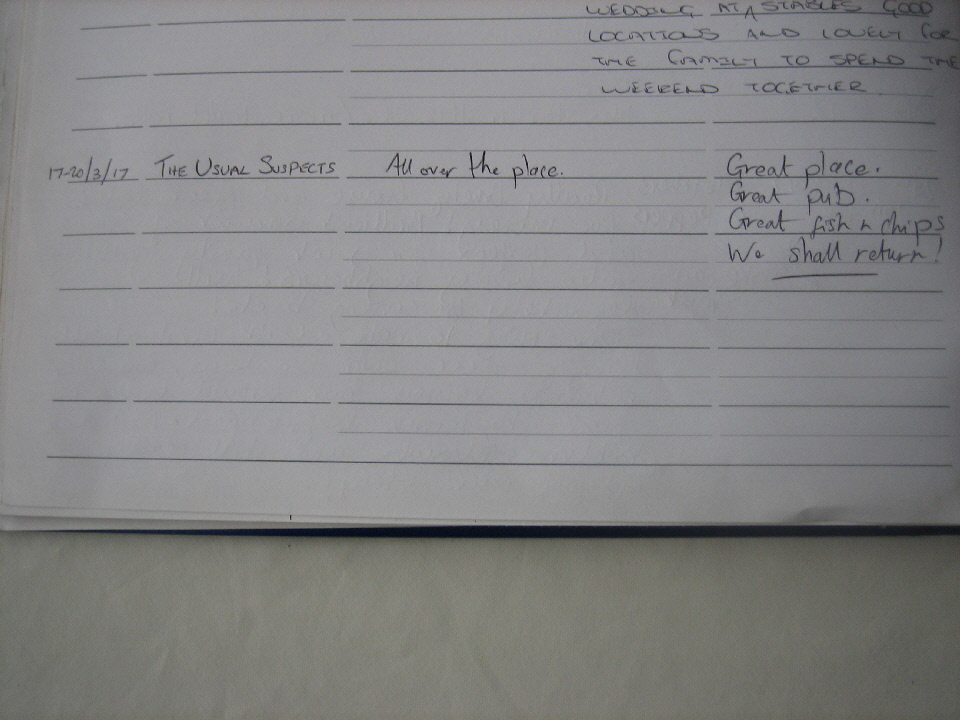 WEDDING AT A STABLES GOOD
LOCATIONS AND LOVELY FOR
THE FAMILY TO SPEND THE
WEEKEND TOGETHER.
17-20/3/17 THE USUAL SUSPECTS All over the place. Great place.
Great pub.
Great fish n chips
We shall return!